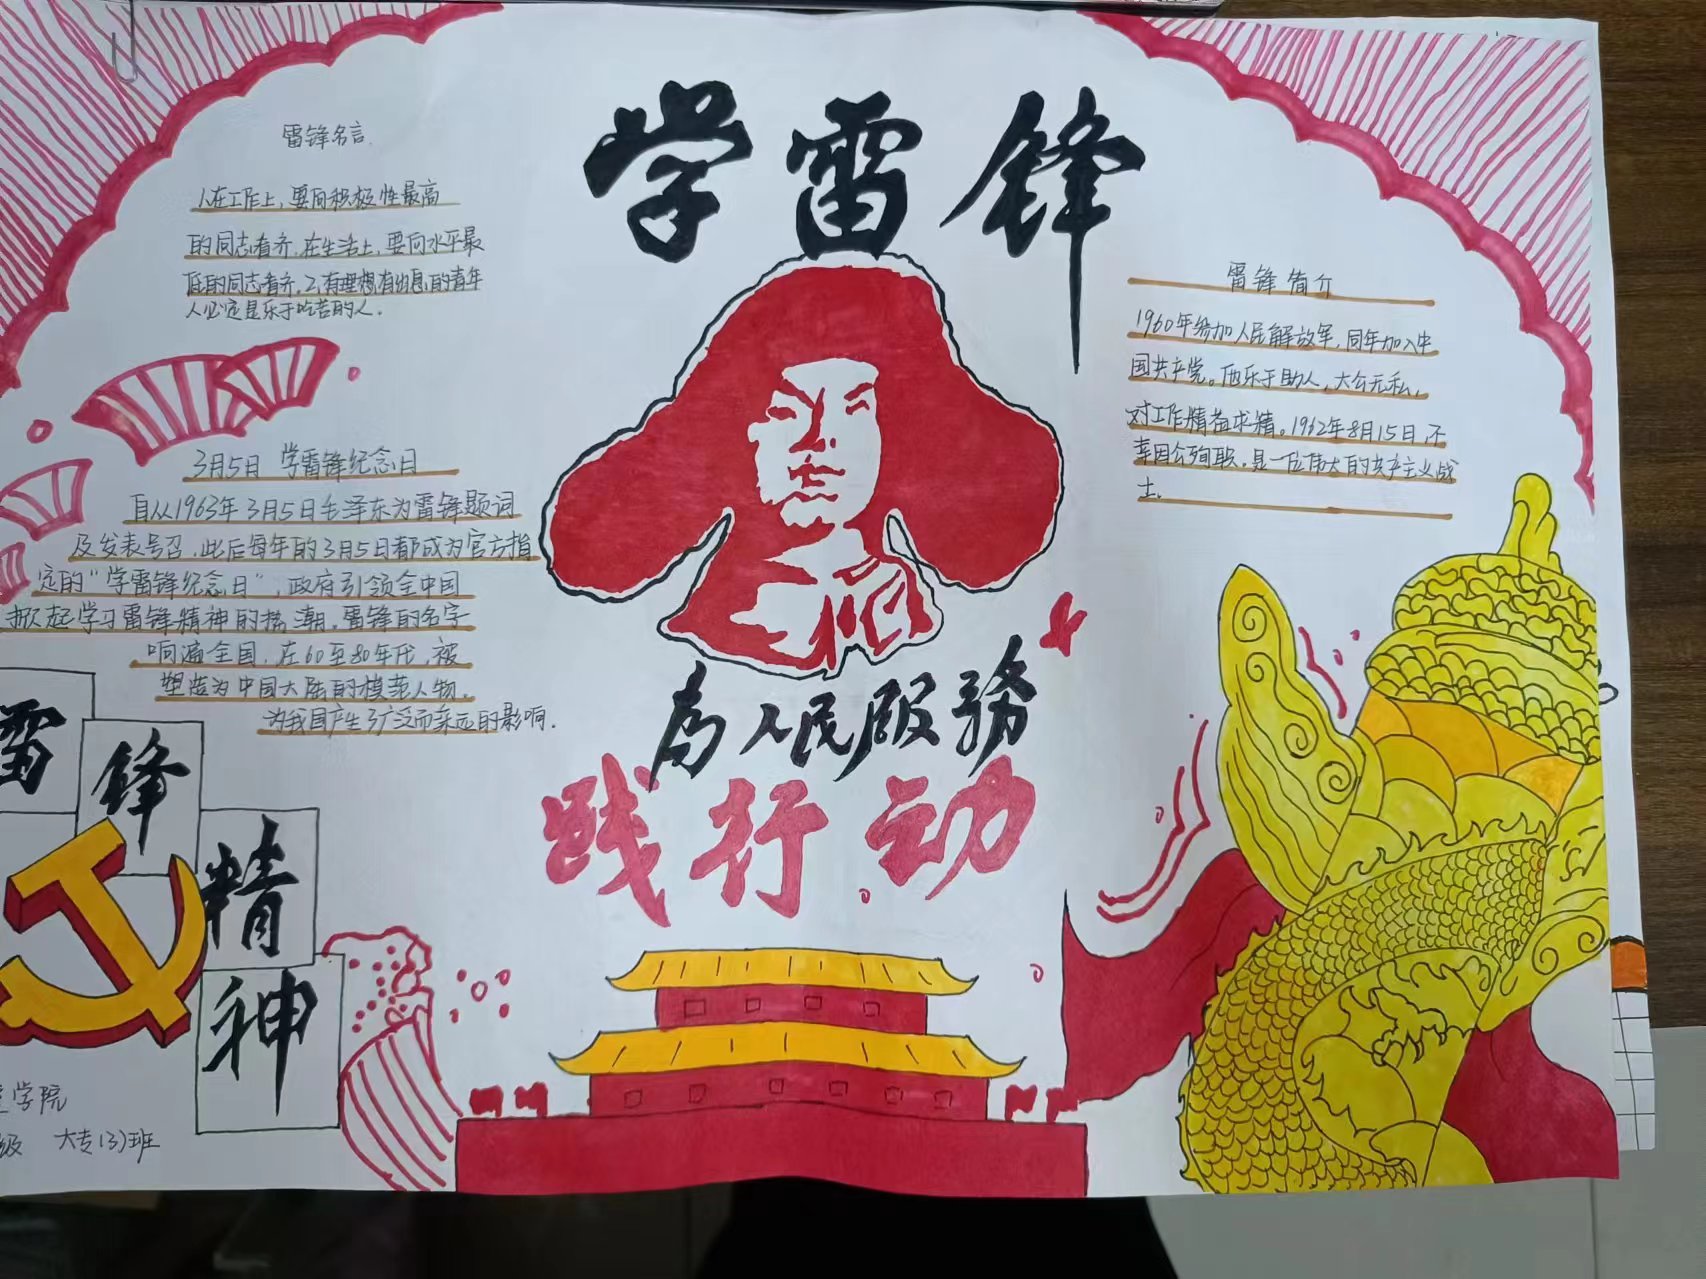 学雷锋
雷锋名言
人在工作上，要向积极性最高
的同志看齐，在生活上，要向水平最
低的同志看齐，2、有理想有出息的青年
人必定是乐于吃苦的人。
3月5日 学雷锋纪念日
自从1963年3月5日毛泽东为雷锋题词
及发表号召，此后每年的3月5日都成为官方指
定的“学雷锋纪念日”，政府引领全中国
掀起学习雷锋精神的热潮，雷锋的名字
响遍全国，在60至80年代，被
塑造为中国大陆的模范人物。
为我国产生了广泛而深远的影响。
雷锋简介
1960年参加人民解放军，同年加入中
国共产党。他乐于助人，大公无私，
对工作精益求精。1962年8月15日，不
幸因公殉职。是一位伟大的共产主义战
士。
为人民服務
践行动
雷
锋
精
神
学院
级 大专(3)班